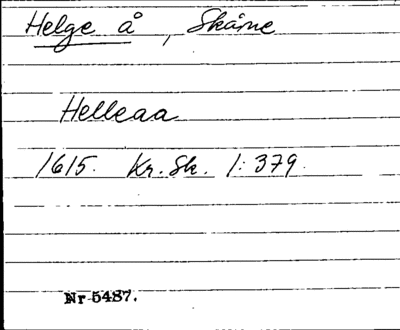 Helge å, Skåne
Helleaa
1615. Kr. Sk. 1: 379.
Nr 5487.